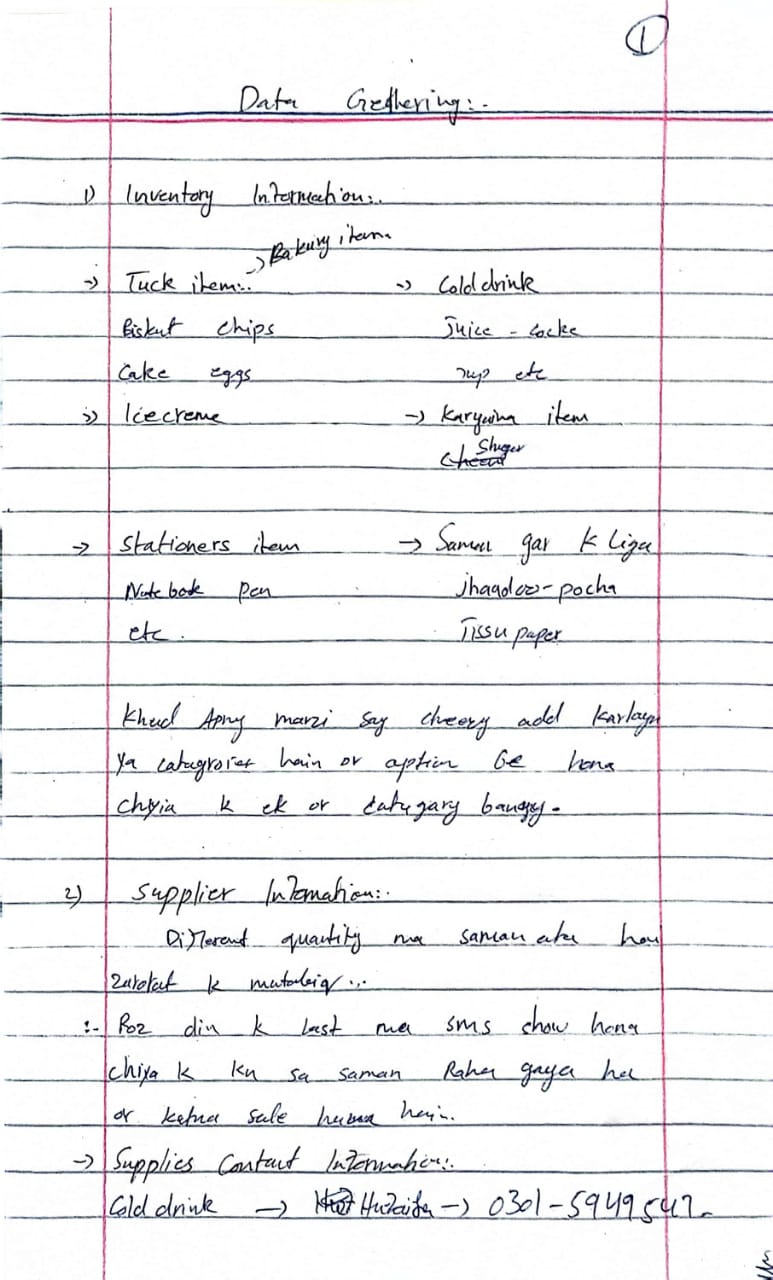 1
Data Gethering:-
1) Inventory Information:.
→ Baking item
→ Tuck item:. → Cold drink
Biskut chips Juice - cocke
Cake eggs 7up etc
→ Icecreme → Karyuina item
Shuger
→ Stationers item → Saman gar k liza
Note book pen jhaadoo-pocha
etc. Tissu paper
Khud Apny marzi say cheezy add karlayn
Ya categroies hain or option be hona
chyia k ek or category banayy.
2) Supplier Information:.
Different quantity ma saman ata hai
zarorat k mutabiq...
:- Roz din k last ma sms show hona
chiya k kn sa saman Raha gaya ha
or ketna sale huwa hain.
→ Supplies Contact Information:.
Cold drink → Huzaifa → 0301-5949547.